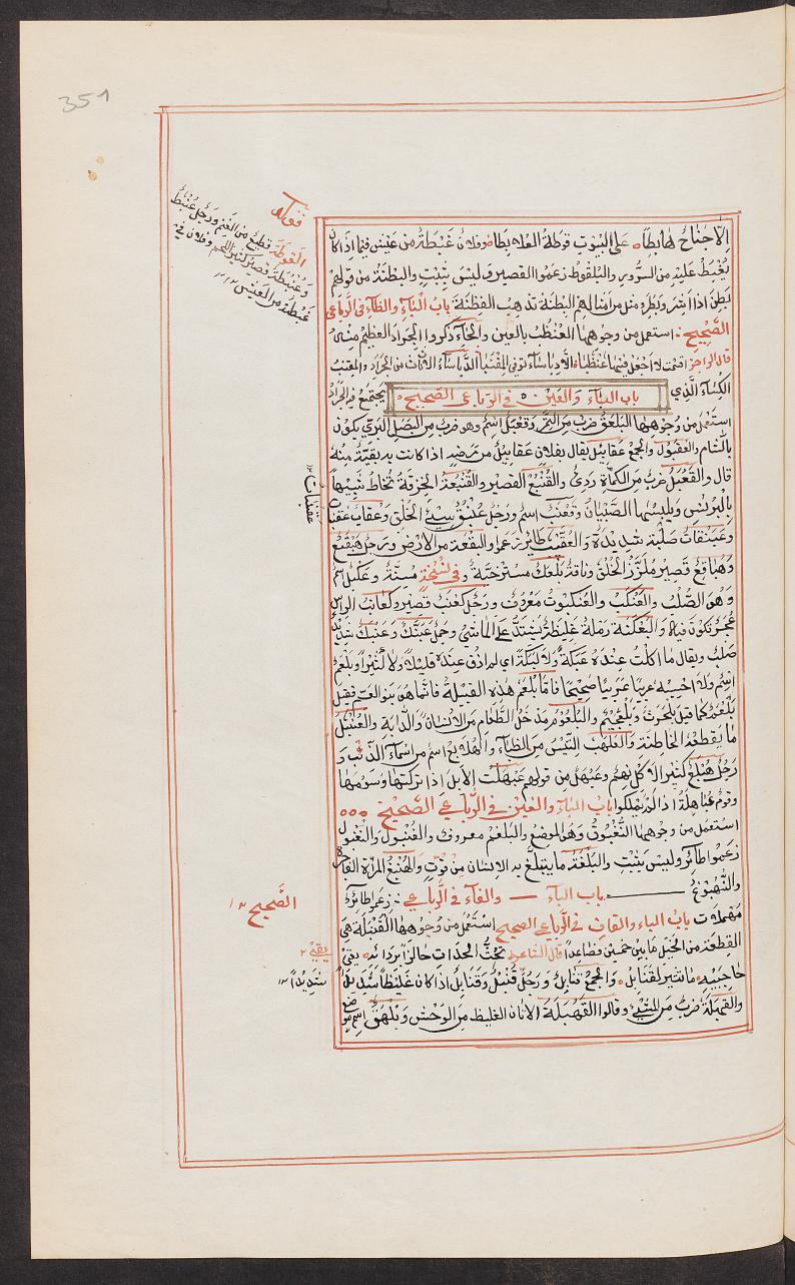 351
قوله
القوطة قطيع من الغنم ورجل عنبط
وعنبطة قصير كثير اللحم وفلان في
غبطة من العيش ١٢
الاجناح لها بطا على البيوت قوطه العلا بطا وفلان غبطة من عيش فيما اذا كان
يغبط عليه من السرور والبلقوط زعموا القصير وليس بثبت والبطنة من قولهم
بطن اذا اشر وبطره مثل من امثالهم البطنة تذهب الفطنة باب الباء والظاء في الرباعي
الصحيح استعمل من وجوهها العنظب بالعين والحاء ذكروا الجراد العظيم منه
قال الراجز
الكساء الذي
باب الباء والعين في الرباعي الصحيح
يجتمع فيه الجراد
استعمل من وجوهها البلعق ضرب من التمر وقعبل اسم وهو ضرب من البصل البري يكون
بالشام والعقبول والجمع عقابيل يقال بفلان عقابيل من مرضه اذا كانت به بقية منه
قال والقعبل ضرب من الكمأة ردئ والقنبع القصير والقنبعة الخرقة تخاط شبيها
بالبرنس ويلبسها الصبيان وقعنب اسم ورجل عنبق سيئ الخلق وعقاب عقبنا
عقنبات ١٢
وعبنقات صلبة شديدة والعقب طاير زعموا والبقعة من الارض ورجل هبقع
وهباقع قصير ملزز الخلق وناقة بلعك مسترخية وفي نسخة مسنة وعكبل اسم
وهو الصلب والعنكب والعنكبوت معروف ورجل لعنب قصير
عجر تكون فيه والبعكنة رملة غليظة تشتد على الماشي وجمل عبنك وعنبك شديد
صلب ويقال ما اكلت عنده عبكة ولا لبكة اي لم اذق عنده قليلا ولا كثيرا وبلعم
اسم ولا احسبه عربيا صحيحا فاما بلعم هذه القبيلة فانما هو بنو العم فقيل
بلعم كما قيل بلحرث وبلهجيم والبلعوم مدخل الطعام من الانسان والدابة والعنبل
ما يقطعه الخاطنة والعلهب التيس من الظباء والهلابع اسم من اسماء الذئب و
رجل هبلع كثير الاكل نهم وعبهل من قولهم عبهلت الابل اذا تركتها وسومها
وقوم عباهلة اذا لم يملكوا باب الباء والغين في الرباعي الصحيح
استعمل من وجوهها الثغبوق وهو الموضع والبلغم معروف والغنبول والنغبول
زعموا طائر وليس بثبت والبلغة ما يتبلغ به الانسان من قوت والهنبغ المراة الفاجرة
والنهبوغ باب الباء والفاء في الرباعي زعموا طائر
الصحيح ١٢
مهملات باب الباء والقاف في الرباعي الصحيح استعمل من وجوهها القنبلة هي
القطعة من الخيل ما بين خمسين فصاعدا قال الشاعر يحث الحداة جالزا بردائه يقي
يقي ١٢
حاجبيه ما تثير القنابل والجمع قنابل ورجل قنبل وقنابل اذا كان غليظا شديدا
شديدا ١٢
والقهبلة ضرب من المشي وقالوا القهبلة الاتان الغليظ من الوحش وبلهق اسم موضع